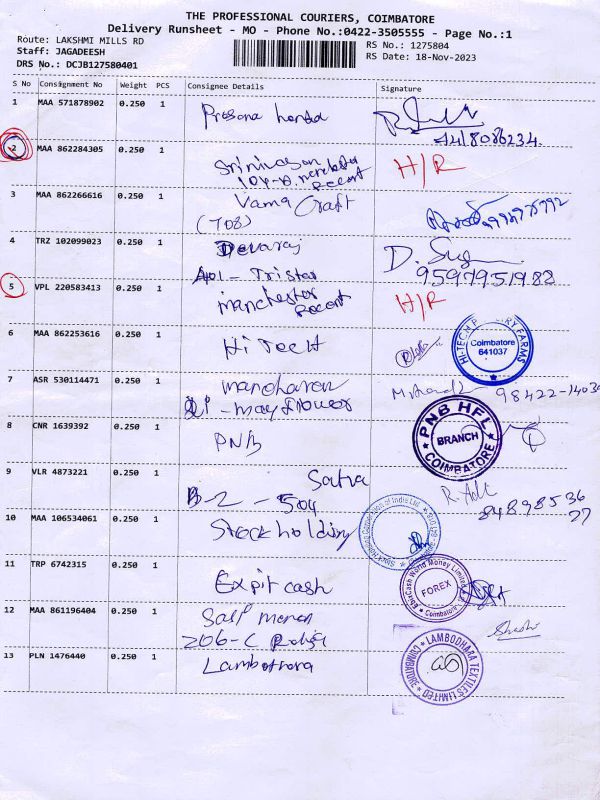 THE PROFESSIONAL COURIERS, COIMBATORE
Delivery Runsheet - MO - Phone No.:0422-3505555 - Page No.:1
Route: LAKSHMI MILLS RD
RS No.: 1275804
Staff: JAGADEESH
RS Date: 18-Nov-2023
DRS No.: DCJB127580401
S No Consignment No Weight PCS Consignee Details Signature
1 MAA 571878902 0.250 1 Prasana honda
2 MAA 862284305 0.250 1 Srinivasan H/R
manchester
Recort
3 MAA 862266616 0.250 1 Vama Craft
(TOB)
4 TRZ 102099023 0.250 1 Devaraj
A01 - Tristar 9597951988
5 VPL 220583413 0.250 1 manchester H/R
Recort
6 MAA 862253616 0.250 1 Hi Tech
Coimbatore
641037
7 ASR 530114471 0.250 1 manoharan
- mayflower 98422-14030
8 CNR 1639392 0.250 1 PNB
PNB HFL
BRANCH
COIMBATORE
9 VLR 4873221 0.250 1 Satva
B-2 - 504
10 MAA 106534061 0.250 1 Stock holding
Stock Holding Corporation of India Ltd.
11 TRP 6742315 0.250 1 Expit cash
EbixCash World Money Limited
FOREX
Coimbatore
12 MAA 861196404 0.250 1
206-C
13 PLN 1476440 0.250 1 Lambothara
LAMBODHARA TEXTILES LIMITED
COIMBATORE